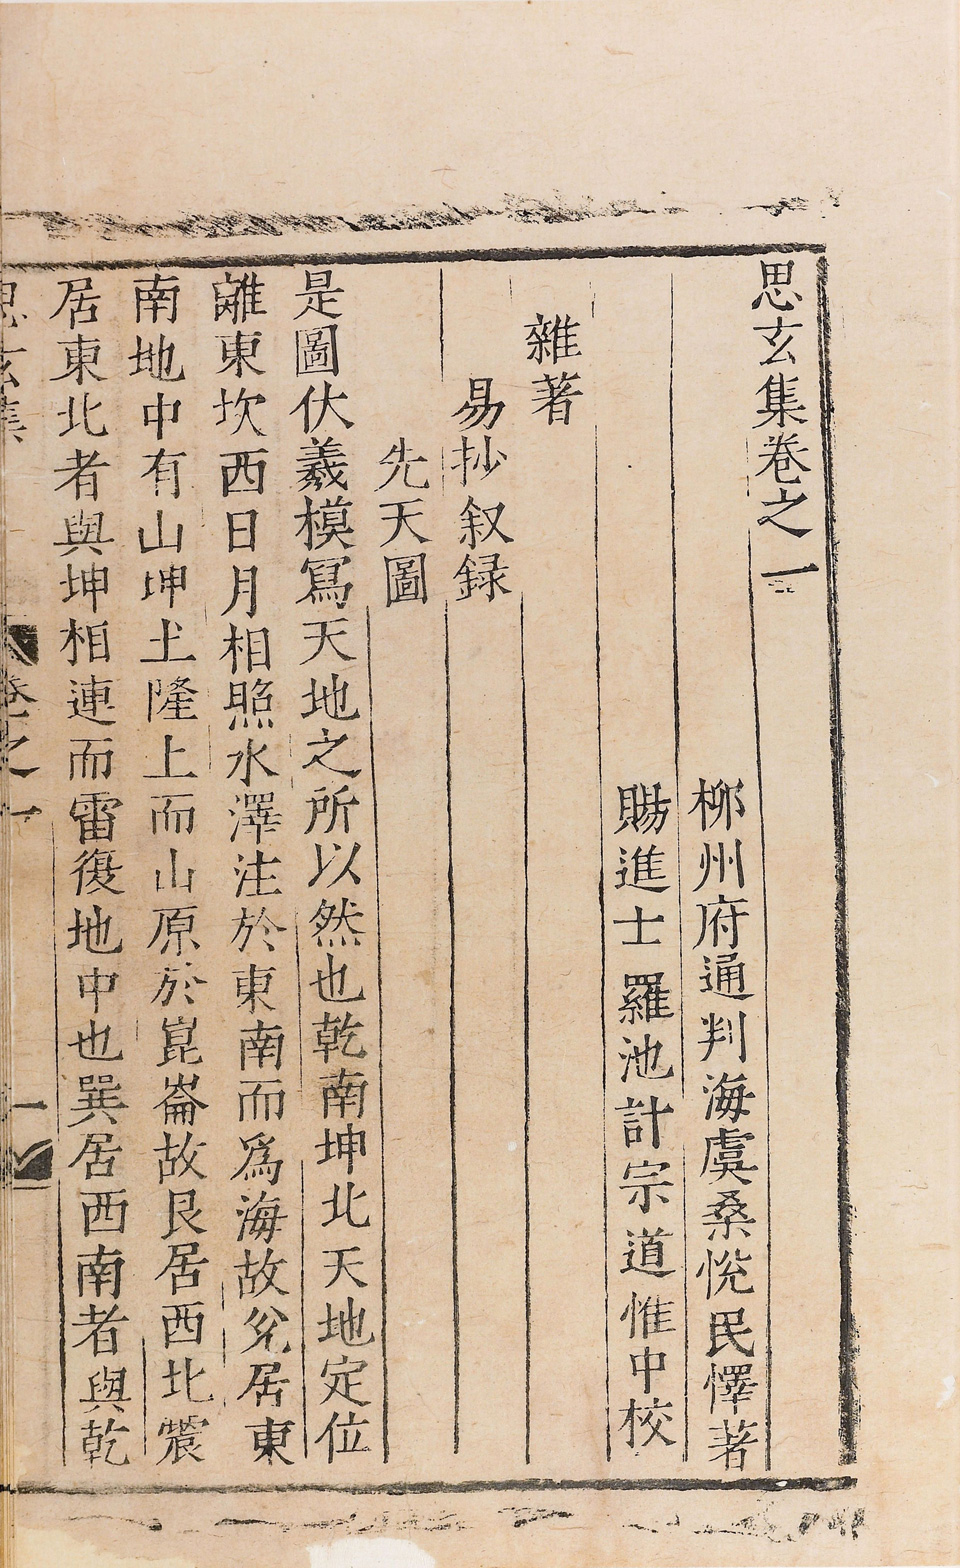 思玄集卷之一
柳州府通判海虞桑悅民懌著
賜進士羅池計宗道惟中校
雜著
易抄叙録
先天圖
是圖伏羲模寫天地之所以然也乾南坤北天地定位
離東坎西日月相照水澤注於東南而爲海故兊居東
南地中有山坤土隆上而山原於崑崙故艮居西北震
居東北者與坤相連而雷復地中也巽居西南者與乾
思玄集 卷之一 一